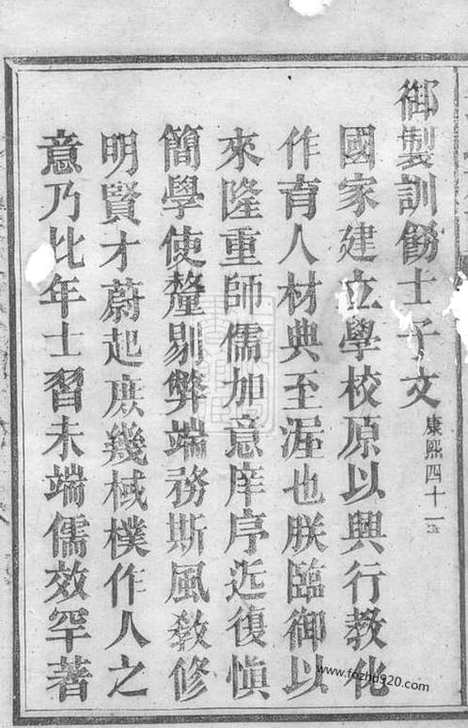 御製訓飭士子文康熙四十一
國家建立學校原以興行教化
作育人材典至渥也朕臨御以
來隆重師儒加意庠序近復慎
簡學使釐剔弊端務斯風教修
明賢才蔚起庶幾棫樸作人之
意乃比年士習未端儒效罕著
www.fozhd920.com